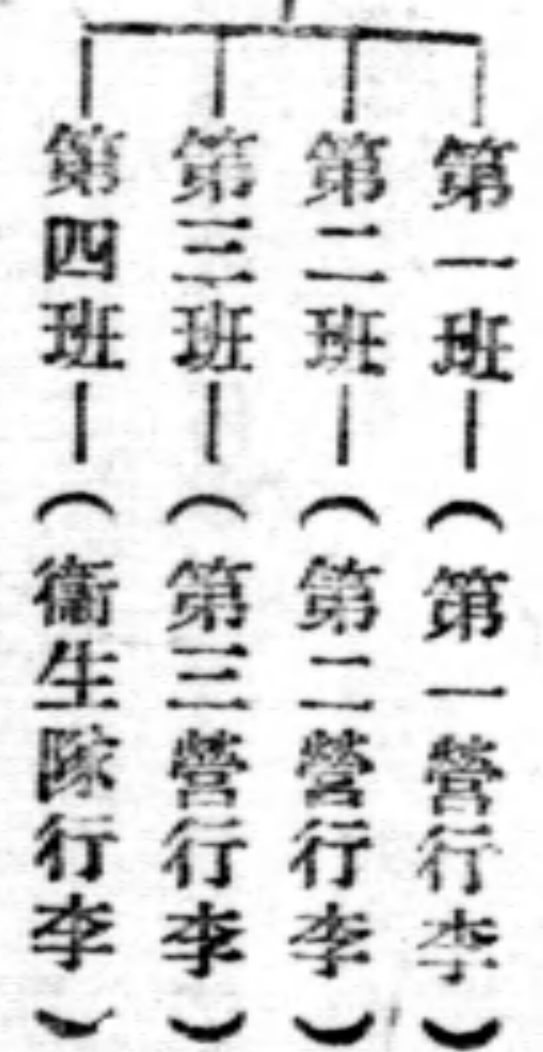 第一班—（第一營行李）
第二班—（第二營行李）
第三班—（第三營行李）
第四班—（衞生隊行李）